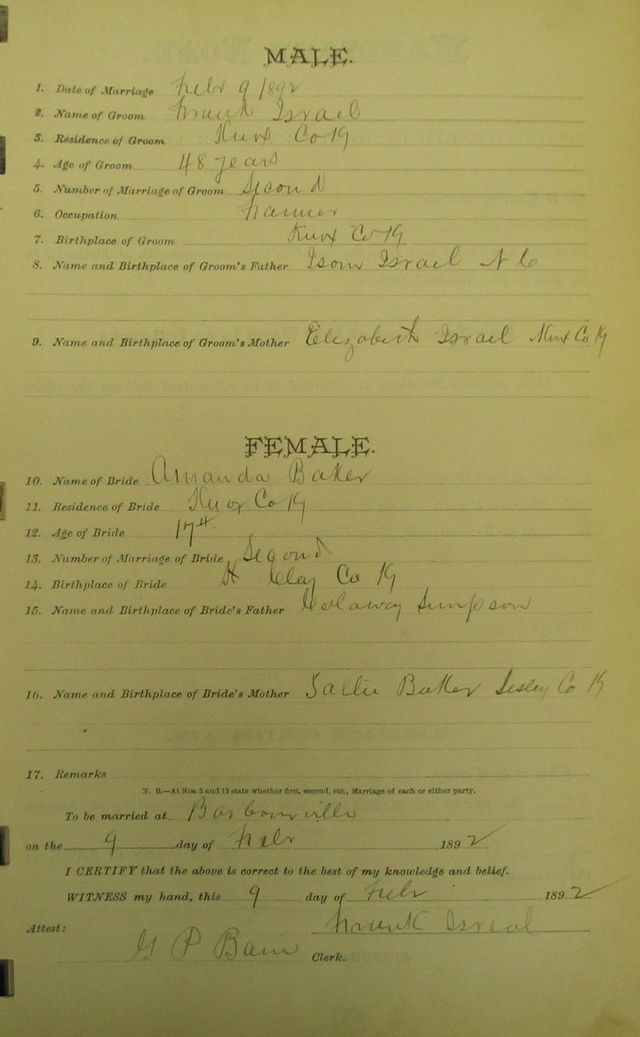 MALE.
1. Date of Marriage Febr 9 1892
2. Name of Groom Frank Israel
3. Residence of Groom Knox Co Ky
4. Age of Groom 48 years
5. Number of Marriage of Groom Second
6. Occupation Farmer
7. Birthplace of Groom Knox Co Ky
8. Name and Birthplace of Groom's Father Isom Israel N C
9. Name and Birthplace of Groom's Mother Elizabeth Israel Knox Co Ky
FEMALE.
10. Name of Bride Amanda Baker
11. Residence of Bride Knox Co Ky
12. Age of Bride
13. Number of Marriage of Bride Second
14. Birthplace of Bride Clay Co Ky
15. Name and Birthplace of Bride's Father Simpson
16. Name and Birthplace of Bride's Mother Sallie Baker Lesley Co K
17. Remarks
N. B.—At Nos. 5 and 13 state whether first, second, etc., Marriage of each or either party.
To be married at Barbourville
on the 9 day of Febr 1892
I CERTIFY that the above is correct to the best of my knowledge and belief.
WITNESS my hand, this 9 day of Febr 1892
Frank Isreal
Attest:
G P Bain Clerk.